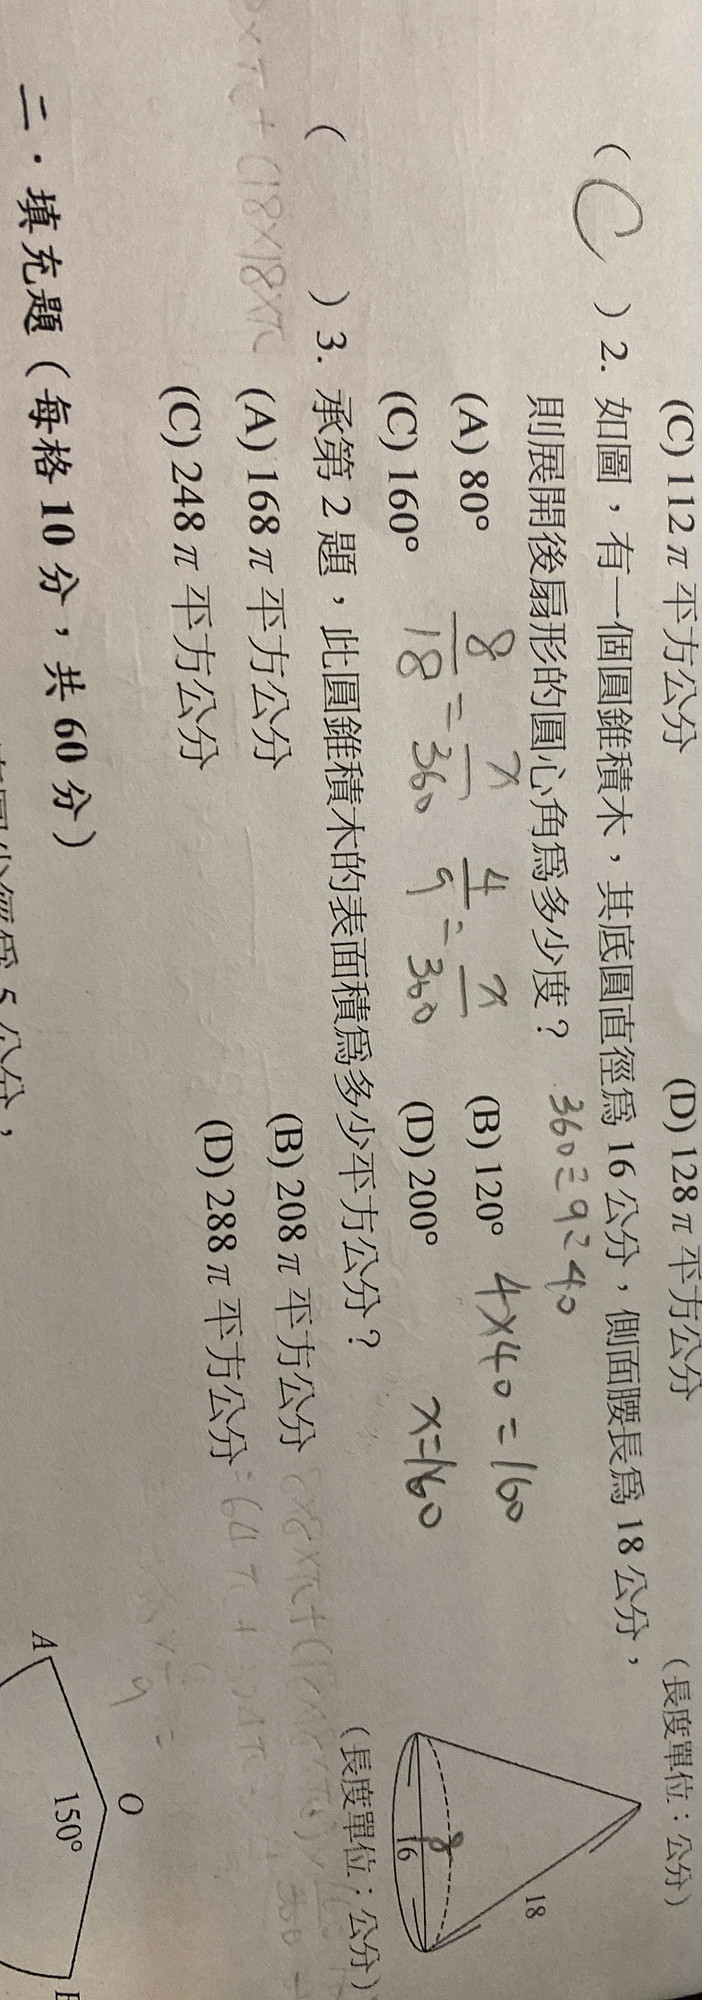 (C) 112π 平方公分 (D) 128π 平方公分
(長度單位:公分)
( C ) 2. 如圖,有一個圓錐積木,其底圓直徑為 16 公分,側面腰長為 18 公分,
則展開後扇形的圓心角為多少度? 360÷9=40
(A) 80° (B) 120° 4×40=160
(C) 160° (D) 200° x=160
8/18 = x/360 4/9 = x/360
18
8
16
(長度單位:公分)
( ) 3. 承第 2 題,此圓錐積木的表面積為多少平方公分?
(A) 168π 平方公分 (B) 208π 平方公分
(C) 248π 平方公分 (D) 288π 平方公分
(18×18×π
二.填充題(每格 10 分,共 60 分)
A
O
150°
5 公分,